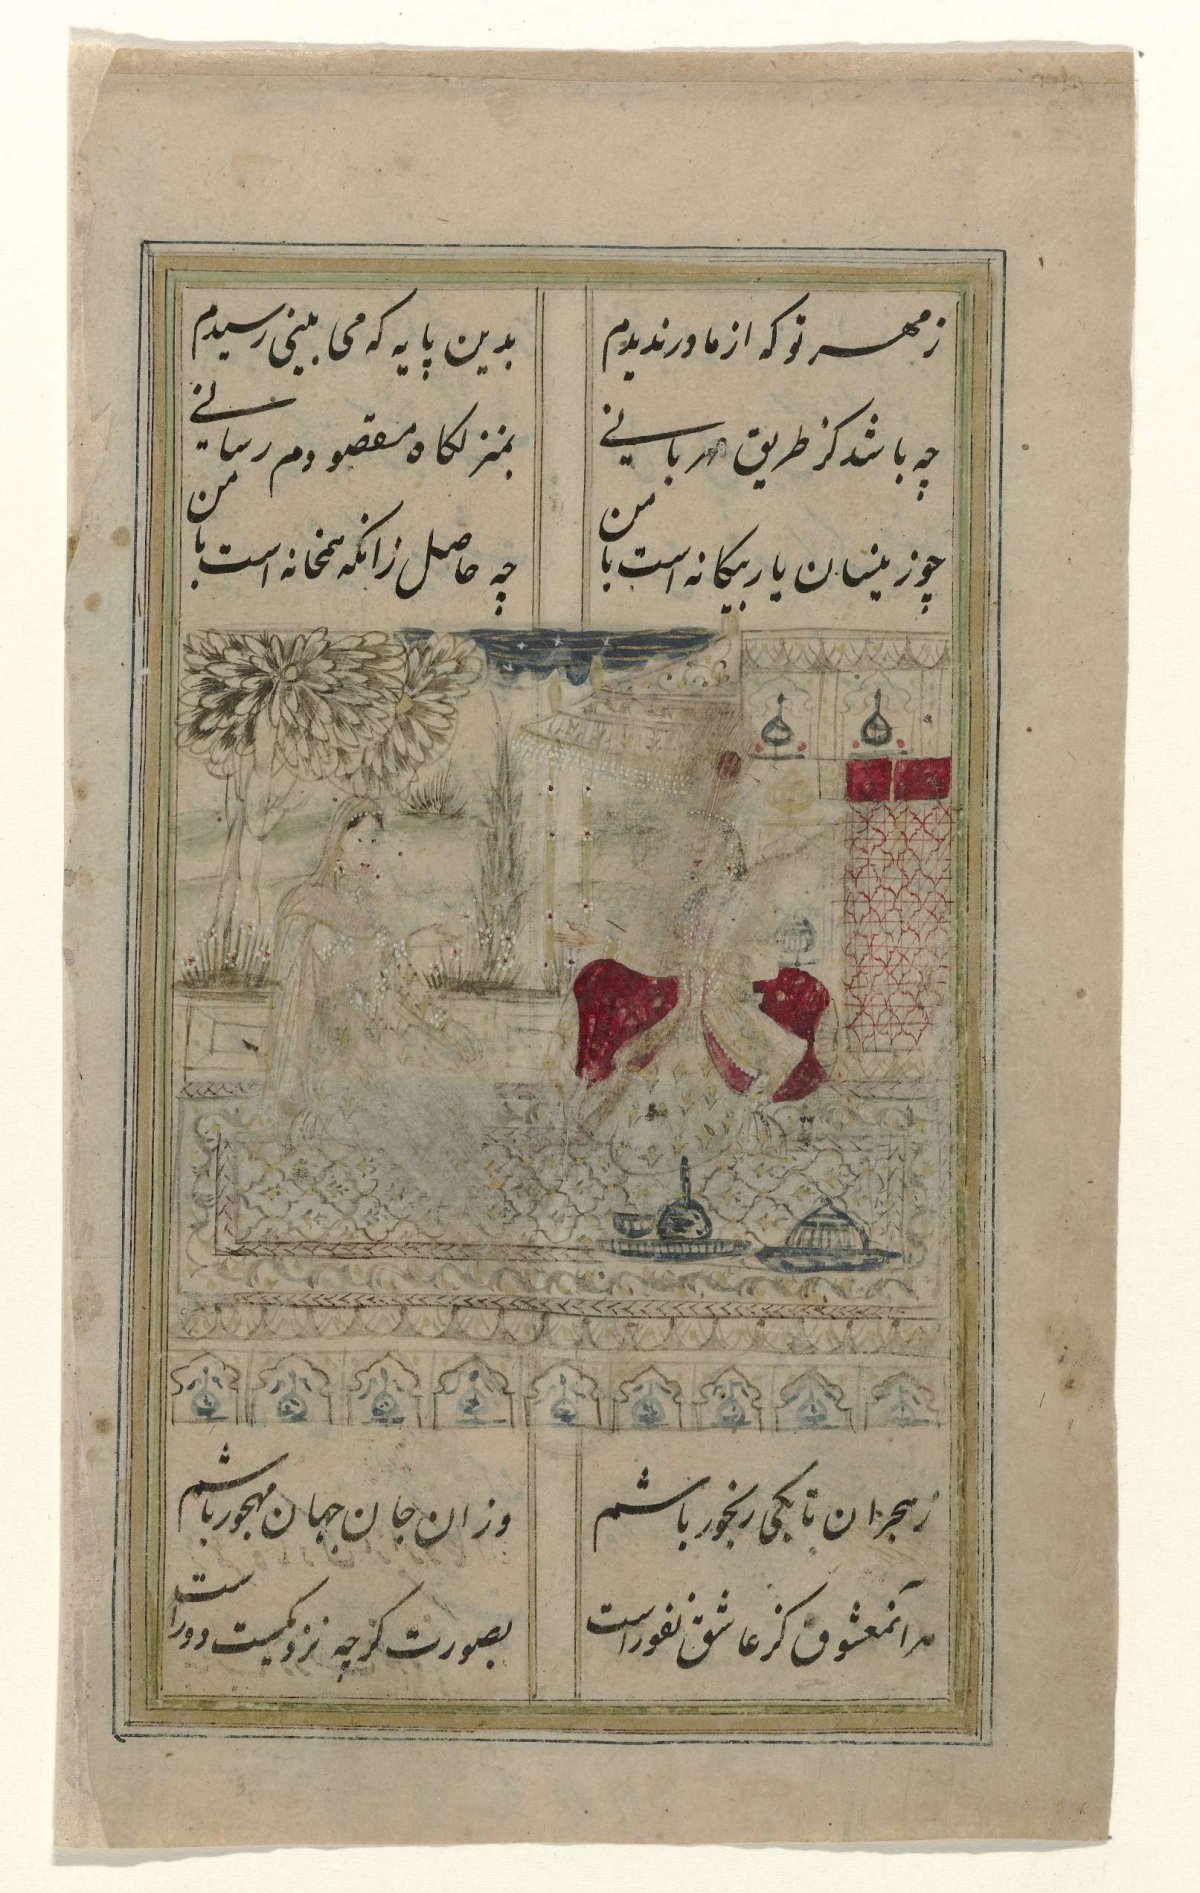 ز مهر تو که از مادر ندیدم
بدین پایه که می بینی رسیدم
چه باشد کز طریق مهربانی
بمنزلگاه مقصودم رسانی
چو زینسان یار بیگانه است با من
چه حاصل زانکه همخانه است با من
ز هجران تا بکی رنجور باشم
وزان جان جهان مهجور باشم
هر آنمعشوق کز عاشق نفور است
بصورت گرچه نزدیکست دور است